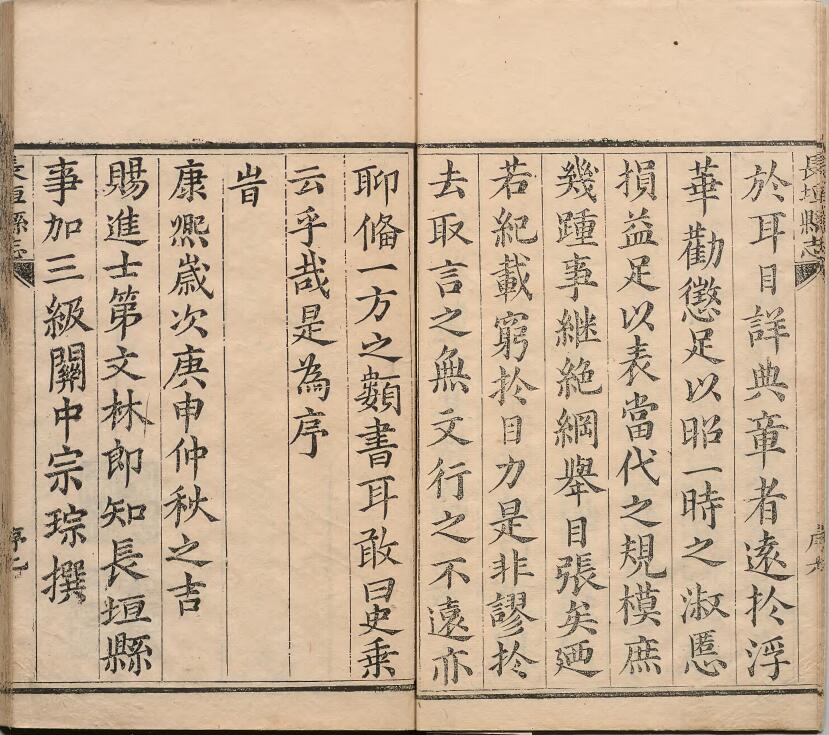 長垣縣志
於耳目詳典章者遠扵浮
華勸懲足以昭一時之淑慝
損益足以表當代之規模庶
幾踵事継絶綱舉目張矣廼
若紀載窮扵目力是非謬扵
去取言之無文行之不遠亦
聊俻一方之纇書耳敢曰史乗
云乎哉是為序
旹
康熈嵗次庚申仲秋之吉
賜進士第文林郎知長垣縣
事加三級關中宗琮撰
長垣縣志
序七